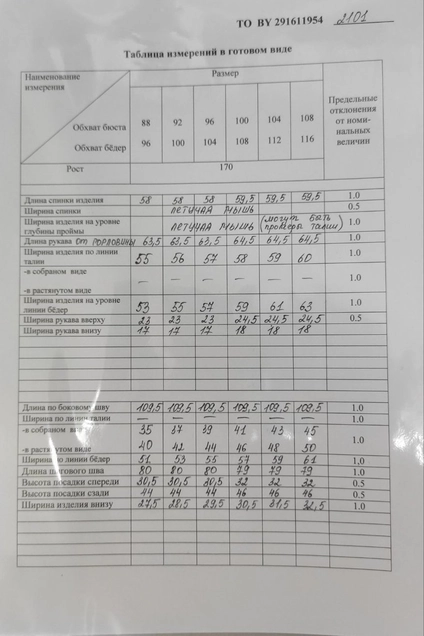 ТО BY 291611954 2101
Таблица измерений в готовом виде
Наименование измерения Размер Предельные отклонения от номинальных величин
Обхват бюста 88 92 96 100 104 108
Обхват бёдер 96 100 104 108 112 116
Рост 170
Длина спинки изделия 58 58 58 59,5 59,5 59,5 1.0
Ширина спинки ЛЕТУЧАЯ МЫШЬ 0.5
Ширина изделия на уровне глубины проймы ЛЕТУЧАЯ МЫШЬ (могут быть 1.0
Длина рукава от горловины 63,5 63,5 63,5 64,5 64,5 64,5 1.0
Ширина изделия по линии талии 55 56 57 58 59 60 1.0
-в собраном виде — — — — — — 1.0
-в растянутом виде
Ширина изделия на уровне линии бёдер 53 55 57 59 61 63 1.0
Ширина рукава вверху 23 23 23 24,5 24,5 24,5 0.5
Ширина рукава внизу 17 17 17 18 18 18
Длина по боковому шву 109,5 109,5 109,5 109,5 109,5 109,5 1.0
Ширина по линии талии — — — — — — 1.0
-в собраном виде 35 37 39 41 43 45 1.0
-в растянутом виде 40 42 44 46 48 50
Ширина по линии бёдер 51 53 55 57 59 61 1,0
Длина шагового шва 80 80 80 79 79 79 1.0
Высота посадки спереди 30,5 30,5 30,5 32 32 32 0.5
Высота посадки сзади 44 44 44 46 46 46 0.5
Ширина изделия внизу 27,5 28,5 29,5 30,5 31,5 32,5 1.0